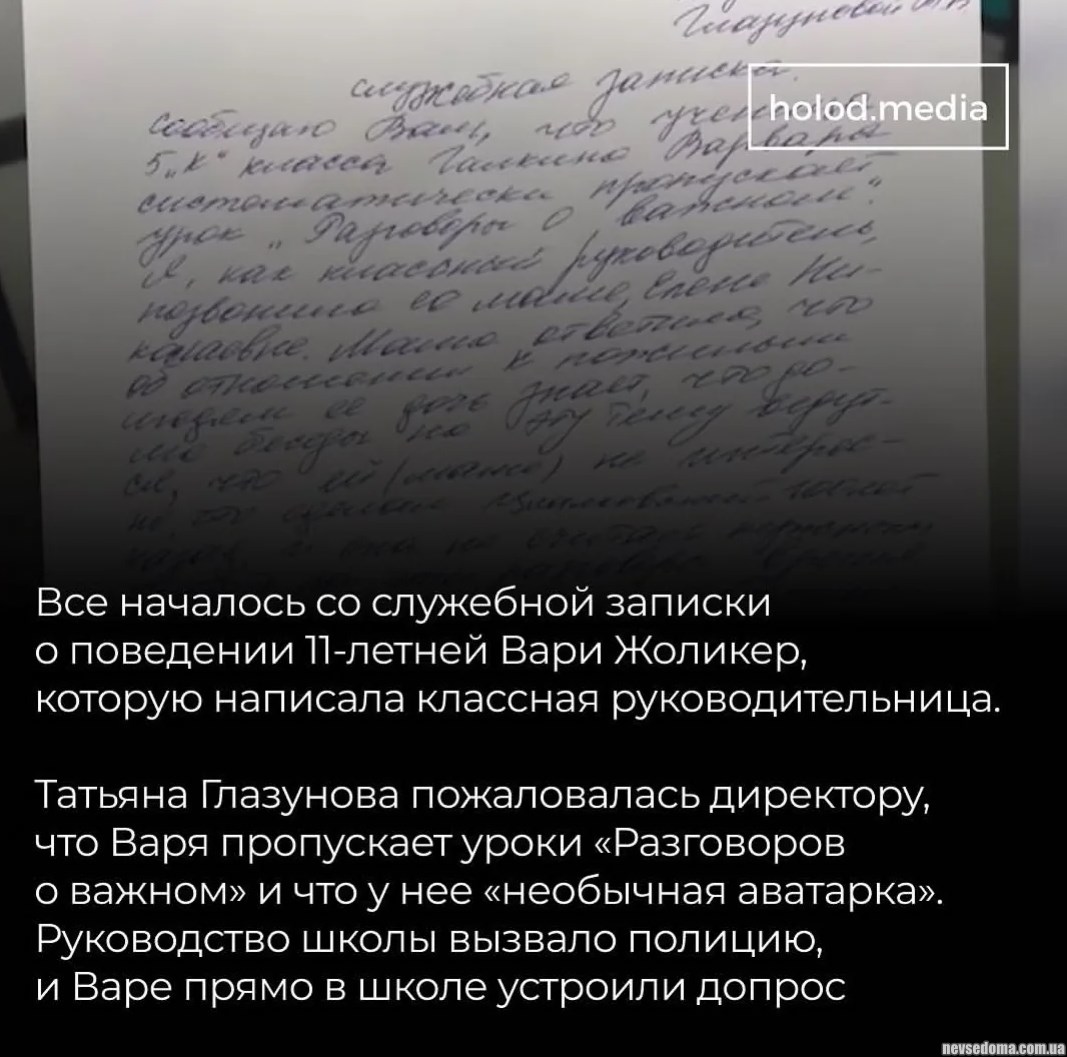 Глазуновой
служебная записка.
holod.media
Сообщаю Вам, что ученица
5 „К“ класса Галкина Варвара
систематически пропускает
урок „Разговоры о важном“.
Я, как классный руководитель,
позвонила ее маме, Елене Ни-
колаевне. Мама ответила, что
об отношении к пожилым
людям ее дочь знает, что до-
ма беседы на эту тему ведут-
ся, что ей (маме) не интерес-
но, что
Все началось со служебной записки
о поведении 11-летней Вари Жоликер,
которую написала классная руководительница.
Татьяна Глазунова пожаловалась директору,
что Варя пропускает уроки «Разговоров
о важном» и что у нее «необычная аватарка».
Руководство школы вызвало полицию,
и Варе прямо в школе устроили допрос
nevsedoma.com.ua